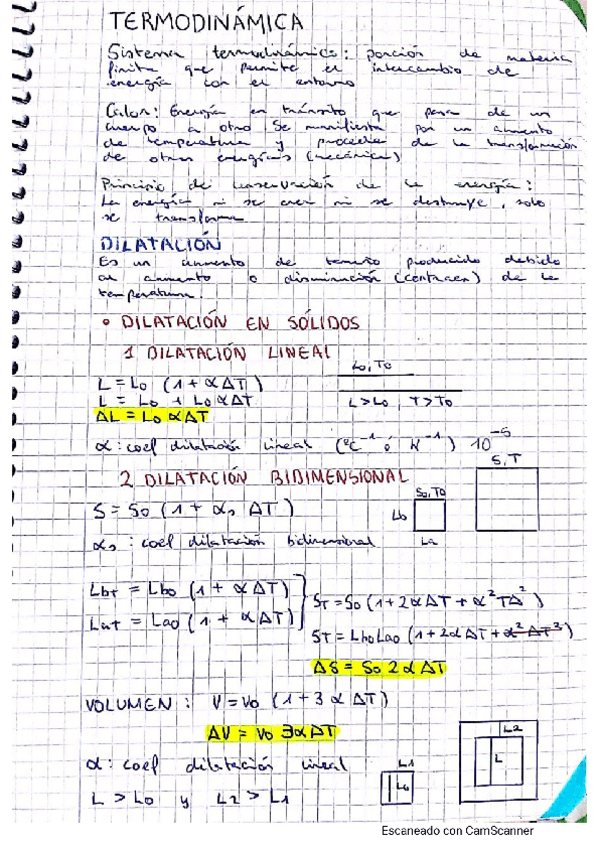 TERMODINÁMICA
Sistema termodinámico: porción de materia
finita que permite el intercambio de
energía con el entorno
Calor: Energía en tránsito que pasa de un
cuerpo a otro Se manifiesta por un aumento
de temperatura y procede de la transformación
de otras energías (mecánica)
Principio de conservación de la energía:
La energía ni se crea ni se destruye, solo
se transforma
DILATACIÓN
Es un aumento de tamaño producido debido
al aumento o disminución (contraen) de la
temperatura.
• DILATACIÓN EN SÓLIDOS
1 DILATACIÓN LINEAL
Lo, To
L = Lo (1 + αΔT)
L = Lo + LoαΔT
L>Lo, T>To
ΔL = Lo αΔT
α: coef dilatación lineal (ºC⁻¹ ó K⁻¹) 10⁻⁵
2 DILATACIÓN BIDIMENSIONAL
S, T
So, To
S = So (1 + αs ΔT)
Lb
La
αs: coef dilatación bidimensional
Lbt = Lbo (1 + αΔT)
Lat = Lao (1 + αΔT)
ST = So (1+2αΔT + α²TΔ²)
ST = LboLao (1+2αΔT + α²ΔT²)
ΔS = So 2αΔT
VOLUMEN: V = Vo (1+3αΔT)
ΔV = Vo 3αΔT
α: coef dilatación lineal
L > Lo y L2 > L1
L1
Lo
L2
L
Escaneado con CamScanner